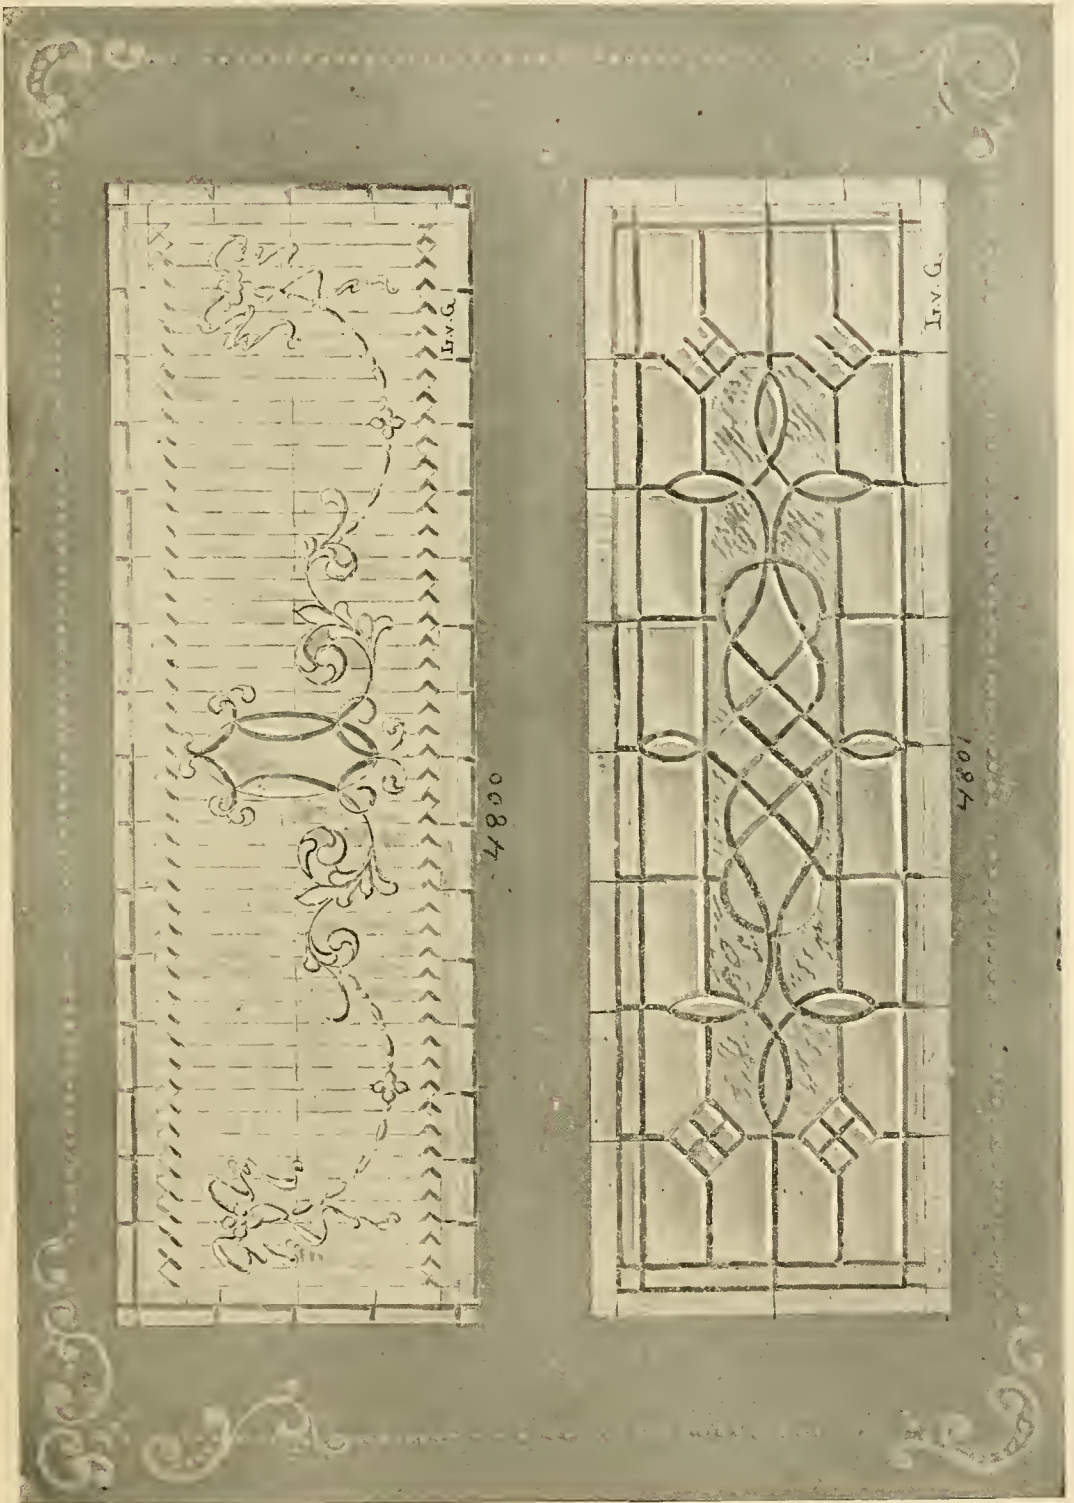 L.v.G.
4800
L.v.G.
4801